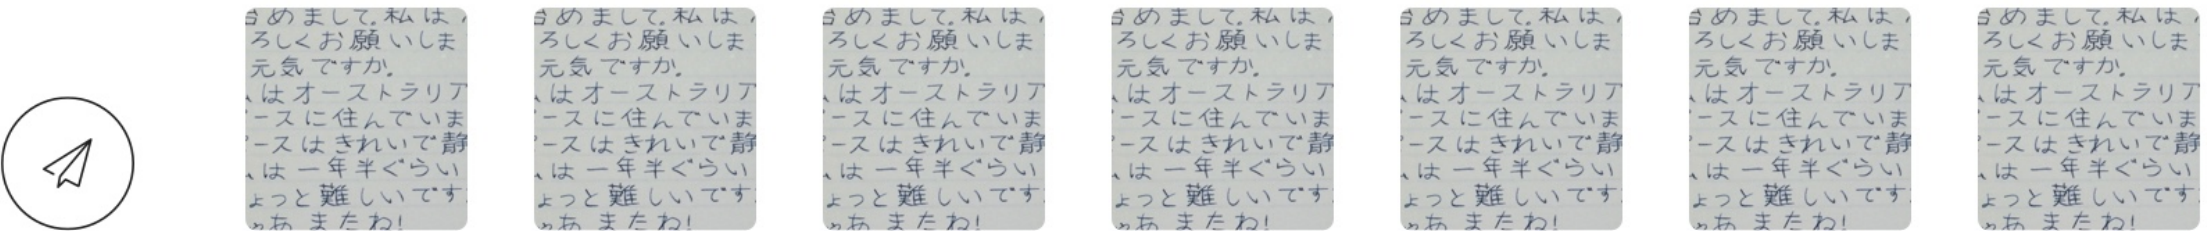 めまして。私は
ろしくお願いしま
元気ですか。
はオーストラリア
ースに住んでいま
ースはきれいで静
は一年半ぐらい
ょっと難しいです
あ またね!
めまして。私は
ろしくお願いしま
元気ですか。
はオーストラリア
ースに住んでいま
ースはきれいで静
は一年半ぐらい
ょっと難しいです
あ またね!
めまして。私は
ろしくお願いしま
元気ですか。
はオーストラリア
ースに住んでいま
ースはきれいで静
は一年半ぐらい
ょっと難しいです
あ またね!
めまして。私は
ろしくお願いしま
元気ですか。
はオーストラリア
ースに住んでいま
ースはきれいで静
は一年半ぐらい
ょっと難しいです
あ またね!
めまして。私は
ろしくお願いしま
元気ですか。
はオーストラリア
ースに住んでいま
ースはきれいで静
は一年半ぐらい
ょっと難しいです
あ またね!
めまして。私は
ろしくお願いしま
元気ですか。
はオーストラリア
ースに住んでいま
ースはきれいで静
は一年半ぐらい
ょっと難しいです
あ またね!
めまして。私は
ろしくお願いしま
元気ですか。
はオーストラリア
ースに住んでいま
ースはきれいで静
は一年半ぐらい
ょっと難しいです
あ またね!